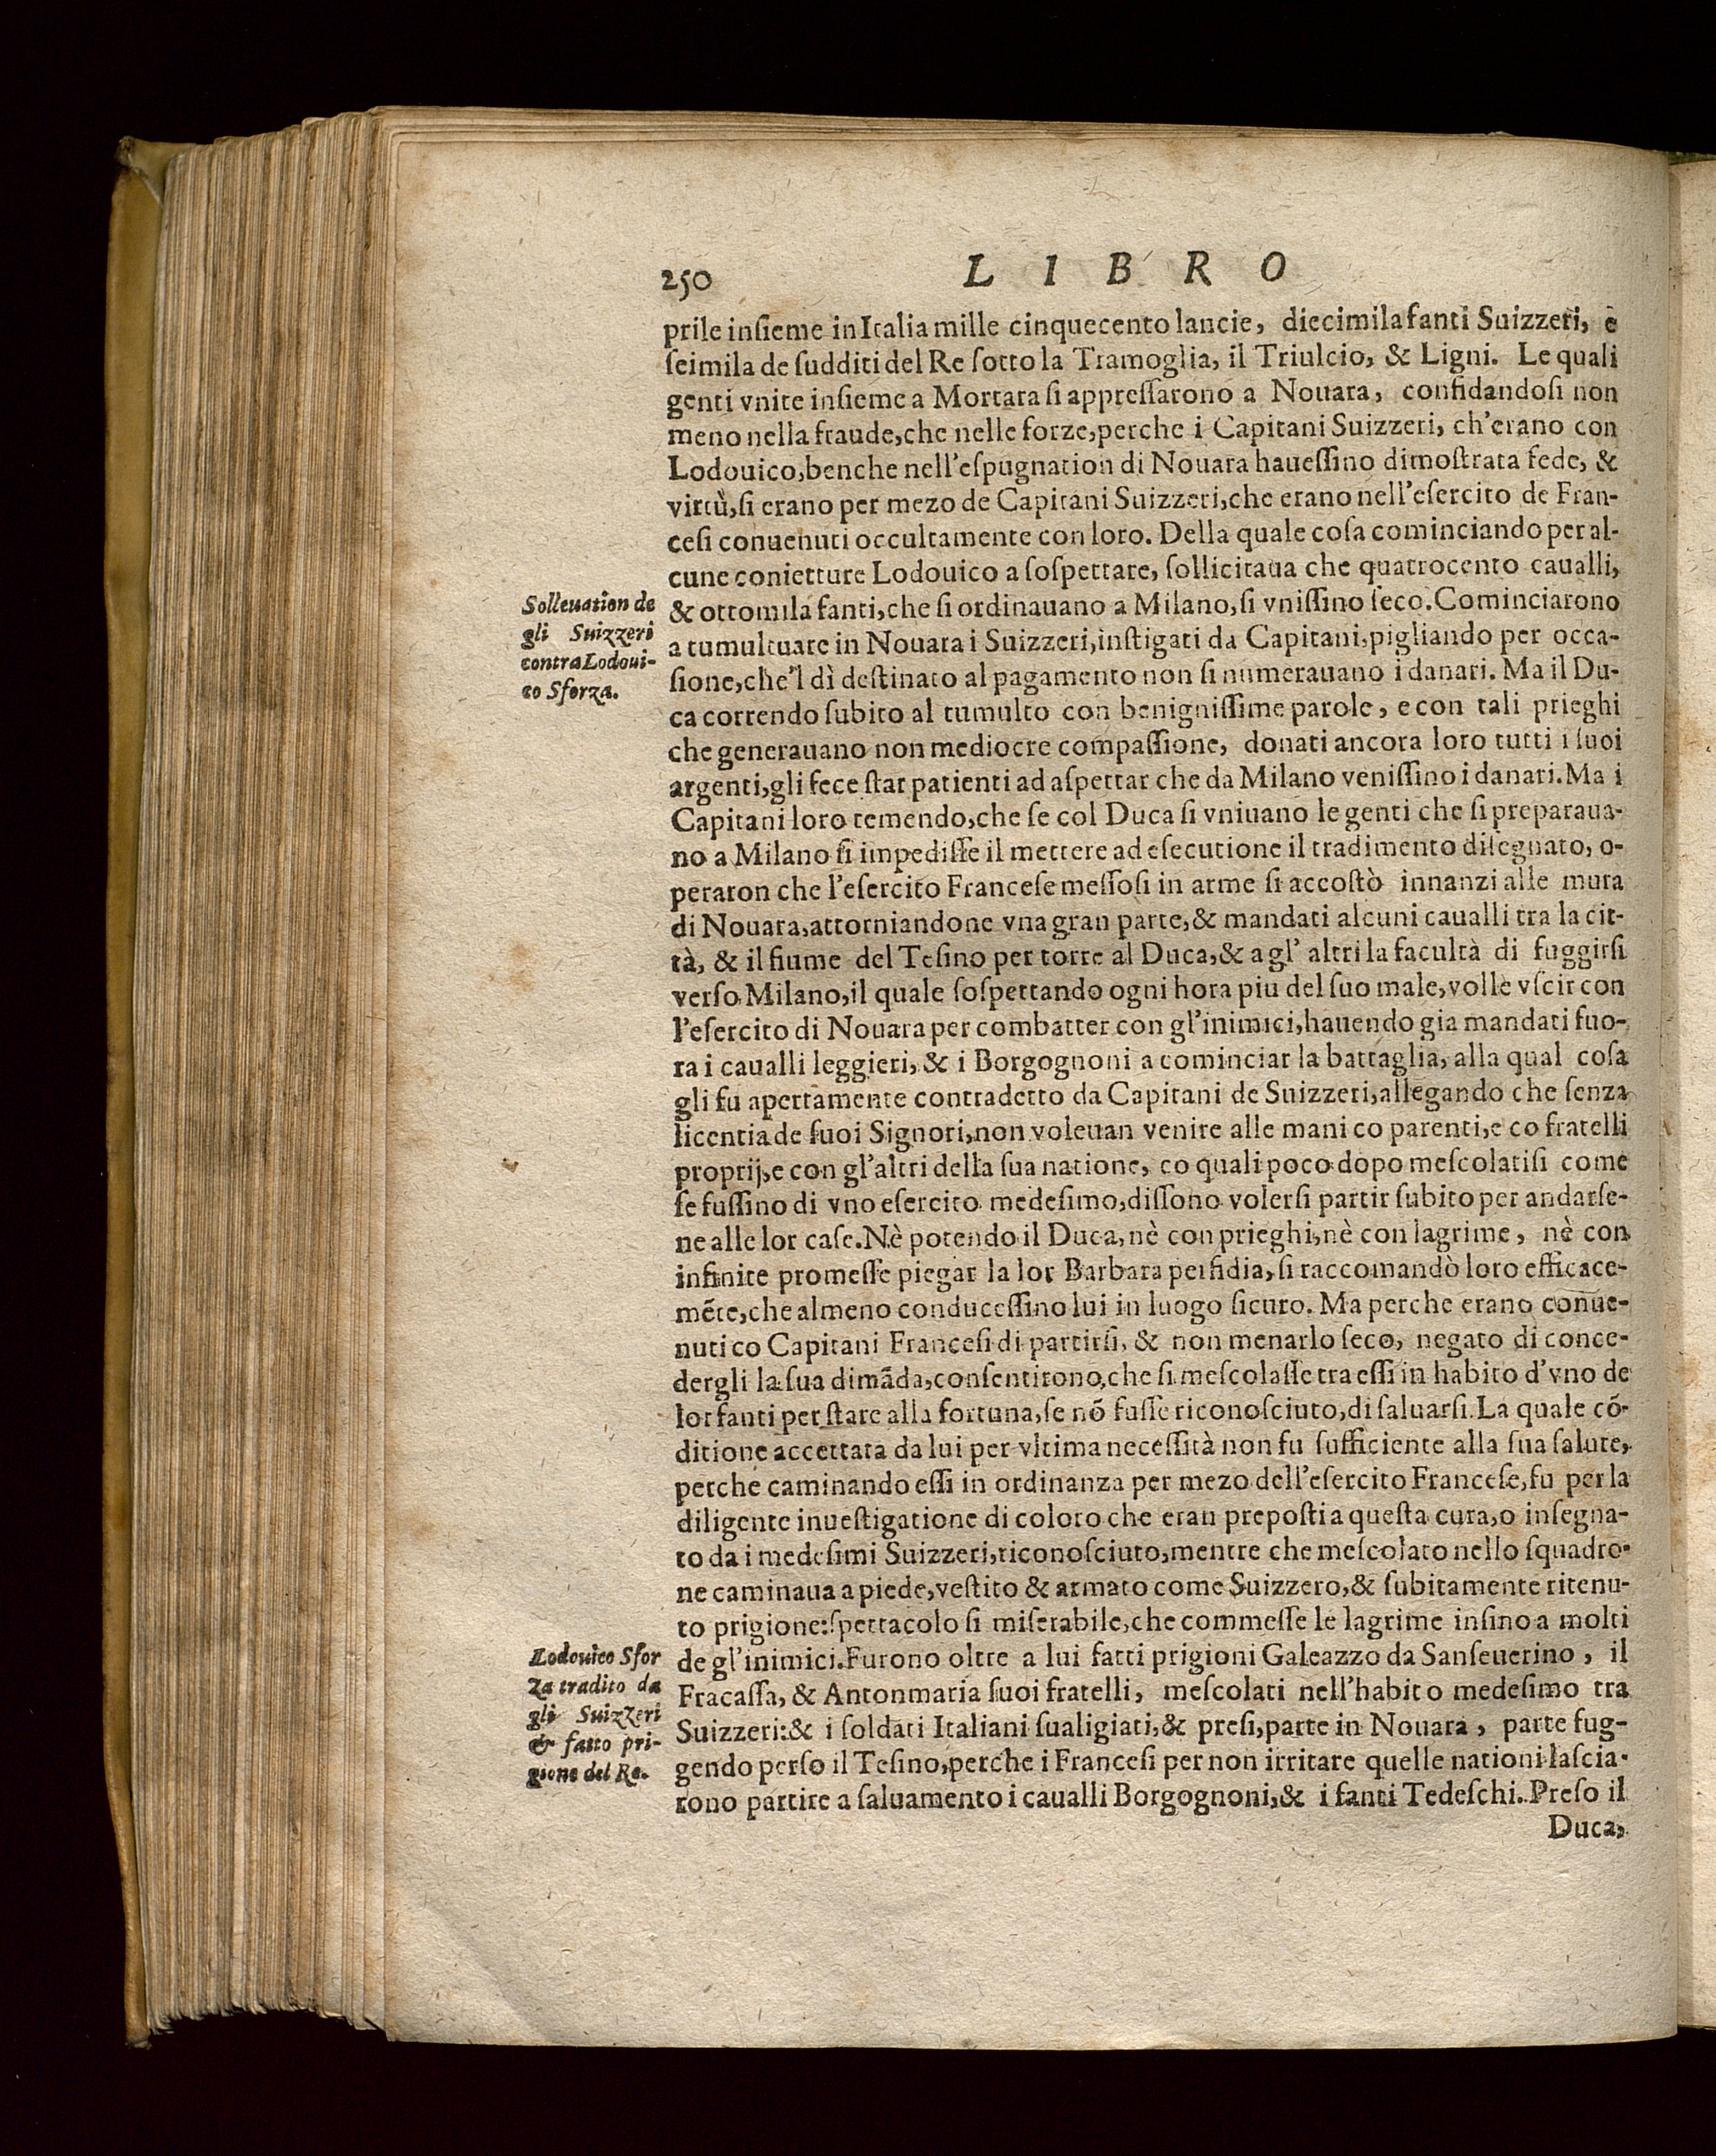 250
L I B R O
prile inſieme in Italia mille cinquecento lancie, diecimila fanti Suizzeri, e
ſeimila de ſudditi del Re ſotto la Tramoglia, il Triulcio, & Ligni. Le quali
genti vnite inſieme a Mortara ſi appreſſarono a Nouara, confidandoſi non
meno nella fraude, che nelle forze, perche i Capitani Suizzeri, ch'erano con
Lodouico, benche nell'eſpugnation di Nouara haueſſino dimoſtrata fede, &
virtù, ſi erano per mezo de Capitani Suizzeri, che erano nell'eſercito de Fran-
ceſi conuenuti occultamente con loro. Della quale coſa cominciando per al-
cune conietture Lodouico a ſoſpettare, ſollicitaua che quattrocento caualli,
& ottomila fanti, che ſi ordinauano a Milano, ſi vniſſino ſeco. Cominciarono
a tumultuare in Nouara i Suizzeri, inſtigati da Capitani, pigliando per occa-
ſione, che'l dì deſtinato al pagamento non ſi numerauano i danari. Ma il Du-
ca correndo ſubito al tumulto con benigniſſime parole, e con tali prieghi
che generauano non mediocre compaſſione, donati ancora loro tutti i ſuoi
argenti, gli fece ſtar patienti ad aſpettar che da Milano veniſſino i danari. Ma i
Capitani loro temendo, che ſe col Duca ſi vniuano le genti che ſi preparaua-
no a Milano ſi impediſſe il mettere ad eſecutione il tradimento diſegnato, o-
peraron che l'eſercito Franceſe meſſoſi in arme ſi accoſtò innanzi alle mura
di Nouara, attorniandone vna gran parte, & mandati alcuni caualli tra la cit-
tà, & il fiume del Teſino per torre al Duca, & a gl' altri la facultà di fuggirſi
verſo Milano, il quale ſoſpettando ogni hora piu del ſuo male, volle vſcir con
l'eſercito di Nouara per combatter con gl'inimici, hauendo gia mandati fuo-
ra i caualli leggieri, & i Borgognoni a cominciar la battaglia, alla qual coſa
gli fu apertamente contradetto da Capitani de Suizzeri, allegando che ſenza
licentia de ſuoi Signori, non voleuan venire alle mani co parenti, e co fratelli
proprij, e con gl'altri della ſua natione, co quali poco dopo meſcolatiſi come
ſe fuſſino di vno eſercito medeſimo, diſſono volerſi partir ſubito per andarſe-
ne alle lor caſe. Nè potendo il Duca, nè con prieghi, nè con lagrime, nè con
infinite promeſſe piegar la lor Barbara perfidia, ſi raccomandò loro efficace-
mēte, che almeno conduceſſino lui in luogo ſicuro. Ma perche erano conue-
nuti co Capitani Franceſi di partirſi, & non menarlo ſeco, negato di conce-
dergli la ſua dimāda, conſentirono, che ſi meſcolaſſe tra eſſi in habito d'vno de
lor fanti per ſtare alla fortuna, ſe nō fuſſe riconoſciuto, di ſaluarſi. La quale cō-
ditione accettata da lui per vltima neceſſità non fu ſufficiente alla ſua ſalute,
perche caminando eſſi in ordinanza per mezo dell'eſercito Franceſe, fu per la
diligente inueſtigatione di coloro che eran prepoſti a queſta cura, o inſegna-
to da i medeſimi Suizzeri, riconoſciuto, mentre che meſcolato nello ſquadro-
ne caminaua a piede, veſtito & armato come Suizzero, & ſubitamente ritenu-
to prigione: ſpettacolo ſi miſerabile, che commeſſe le lagrime inſino a molti
de gl'inimici. Furono oltre a lui fatti prigioni Galeazzo da Sanſeuerino, il
Fracaſſa, & Antonmaria ſuoi fratelli, meſcolati nell'habito medeſimo tra
Suizzeri: & i ſoldati Italiani ſualigiati, & preſi, parte in Nouara, parte fug-
gendo perſo il Teſino, perche i Franceſi per non irritare quelle nationi laſcia-
rono partire a ſaluamento i caualli Borgognoni, & i fanti Tedeſchi. Preſo il
Duca,
Solleuation de
gli Suizzeri
contra Lodoui-
co Sforza.
Lodouico Sfor
za tradito da
gli Suizzeri
& fatto pri-
gione del Re.